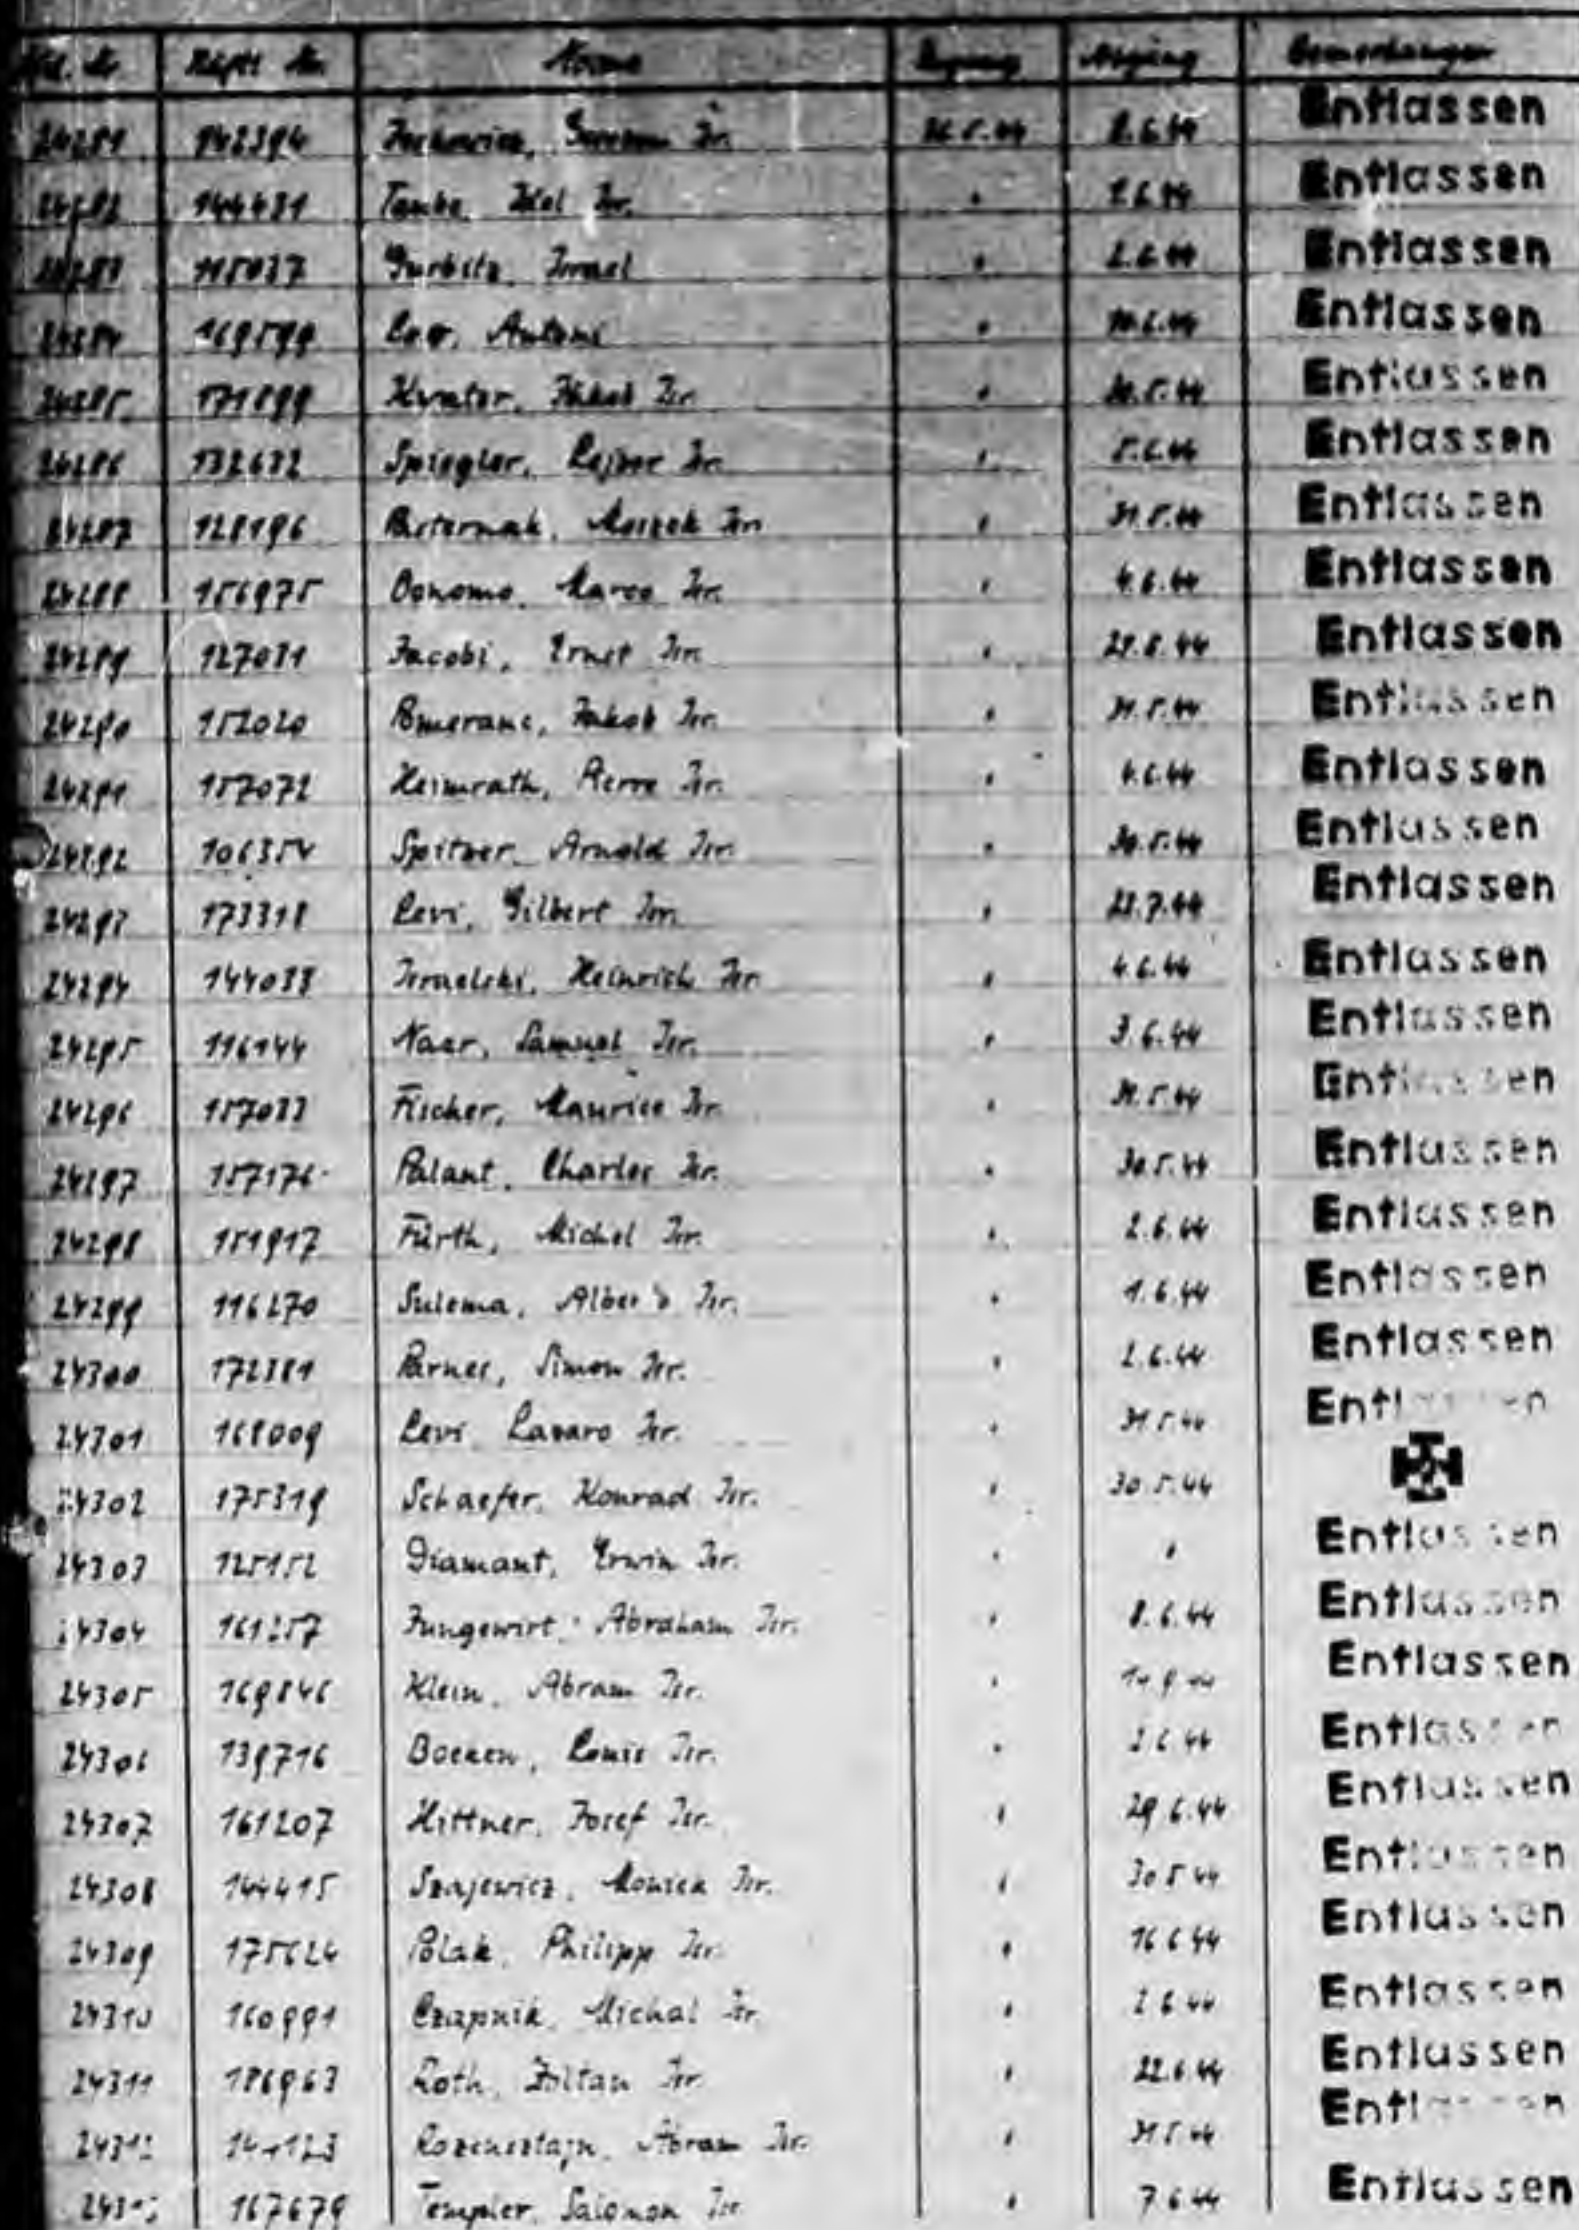 Häftl. Nr. Name Zugang Abgang Bemerkungen
24281 142394 Isr. 26.5.44 2.6.44 Entlassen
24282 144431 Taube, Idel Isr. " 2.6.44 Entlassen
24283 115037 Gurbitz, Israel " 2.6.44 Entlassen
24284 169599 Antoni " Entlassen
24285 171899 Kwater, Jakob Isr. " 30.5.44 Entlassen
24286 132632 Spiegler, Lejzor Isr. " 5.6.44 Entlassen
24287 128196 Pasternak, Moszek Isr. " 31.5.44 Entlassen
24288 156975 Bonomo, Marco Isr. " 4.6.44 Entlassen
24289 127031 Jacobi, Ernst Isr. " 28.8.44 Entlassen
24290 152020 Pomeranc, Jakob Isr. " 31.5.44 Entlassen
24291 157072 Heimrath, Pierre Isr. " 4.6.44 Entlassen
24292 106354 Spitzer, Arnold Isr. " 30.5.44 Entlassen
24293 173318 Levi, Gilbert Isr. " 28.7.44 Entlassen
24294 144038 Israelski, Heinrich Isr. " 4.6.44 Entlassen
24295 116144 Naar, Samuel Isr. " 3.6.44 Entlassen
24296 157033 Fischer, Maurice Isr. " 31.5.44 Entlassen
24297 157176 Palant, Charles Isr. " 30.5.44 Entlassen
24298 151917 Fürth, Michel Isr. " 2.6.44 Entlassen
24299 116270 Sulema, Isr. " 1.6.44 Entlassen
24300 172381 Parnes, Simon Isr. " 2.6.44 Entlassen
24301 168009 Levi, Lazaro Isr. " 31.5.44 Entlassen
24302 175319 Schaefer, Konrad Isr. " 30.5.44
24303 125152 Diamant, Erwin Isr. " " Entlassen
24304 161257 Jungewirt, Abraham Isr. " 8.6.44 Entlassen
24305 169846 Klein, Abram Isr. " Entlassen
24306 139716 Boeken, Louis Isr. " 2.6.44 Entlassen
24307 161207 Hittner, Josef Isr. " 29.6.44 Entlassen
24308 144415 Szajewicz, Isr. " 30.5.44 Entlassen
24309 175624 Polak, Philipp Isr. " 16.6.44 Entlassen
24310 160991 Czapnik, Michal Isr. " 2.6.44 Entlassen
24311 186963 Roth, Zoltan Isr. " 22.6.44 Entlassen
24312 Rozensztajn, Abram Isr. " 31.5.44 Entlassen
167679 Templer, Salomon Isr. " 7.6.44 Entlassen